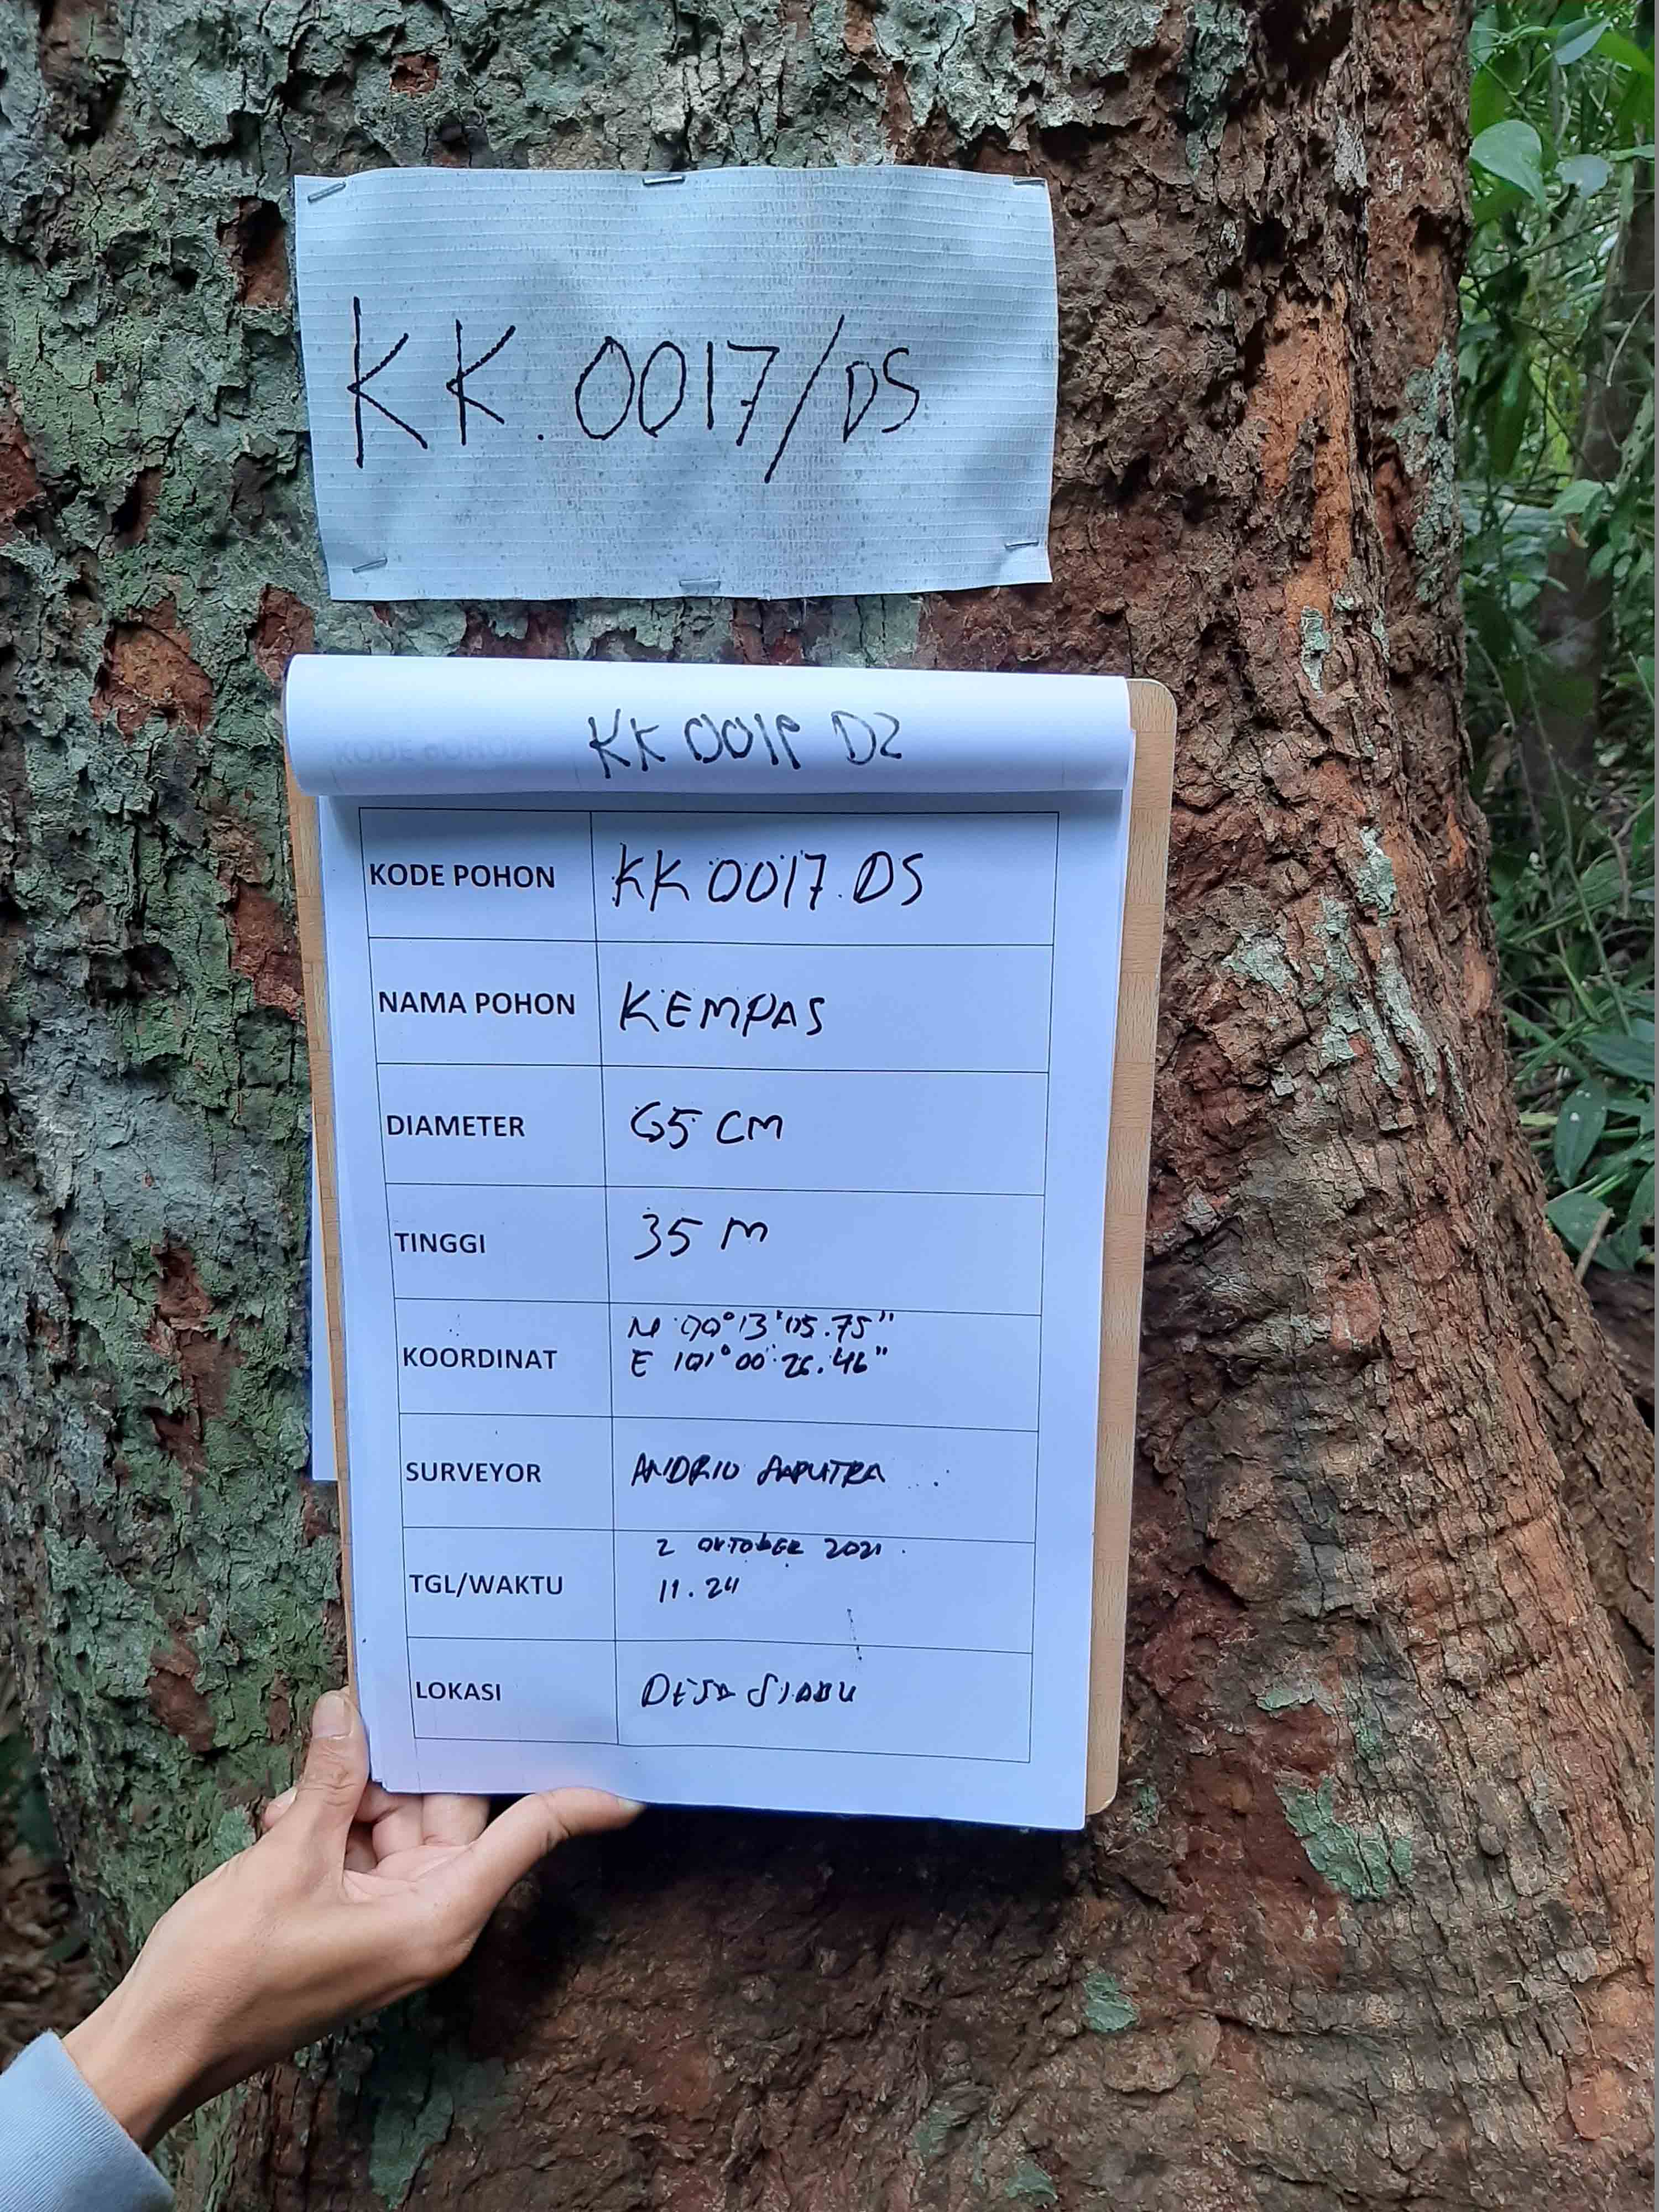 KK.0017/DS
KODE POHON KK 0017.DS
NAMA POHON KEMPAS
DIAMETER 65 CM
TINGGI 35 M
KOORDINAT N 00°13'05.75"
E 101°00'26.46"
SURVEYOR ANDRIO SAPUTRA
TGL/WAKTU 2 OKTOBER 2021
11.24
LOKASI DESA SIABU